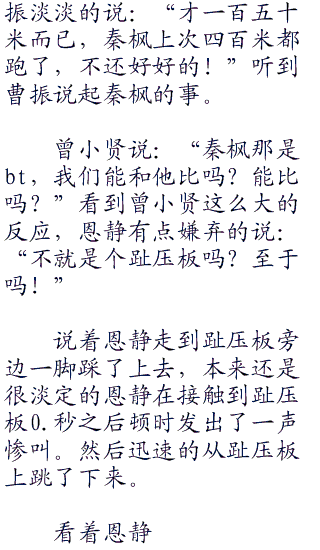 振淡淡的说：“才一百五十
米而已，秦枫上次四百米都
跑了，不还好好的！”听到
曹振说起秦枫的事。
曾小贤说：“秦枫那是
bt，我们能和他比吗？能比
吗？”看到曾小贤这么大的
反应，恩静有点嫌弃的说：
“不就是个趾压板吗？至于
吗！”
说着恩静走到趾压板旁
边一脚踩了上去，本来还是
很淡定的恩静在接触到趾压
板0.秒之后顿时发出了一声
惨叫。然后迅速的从趾压板
上跳了下来。
看着恩静